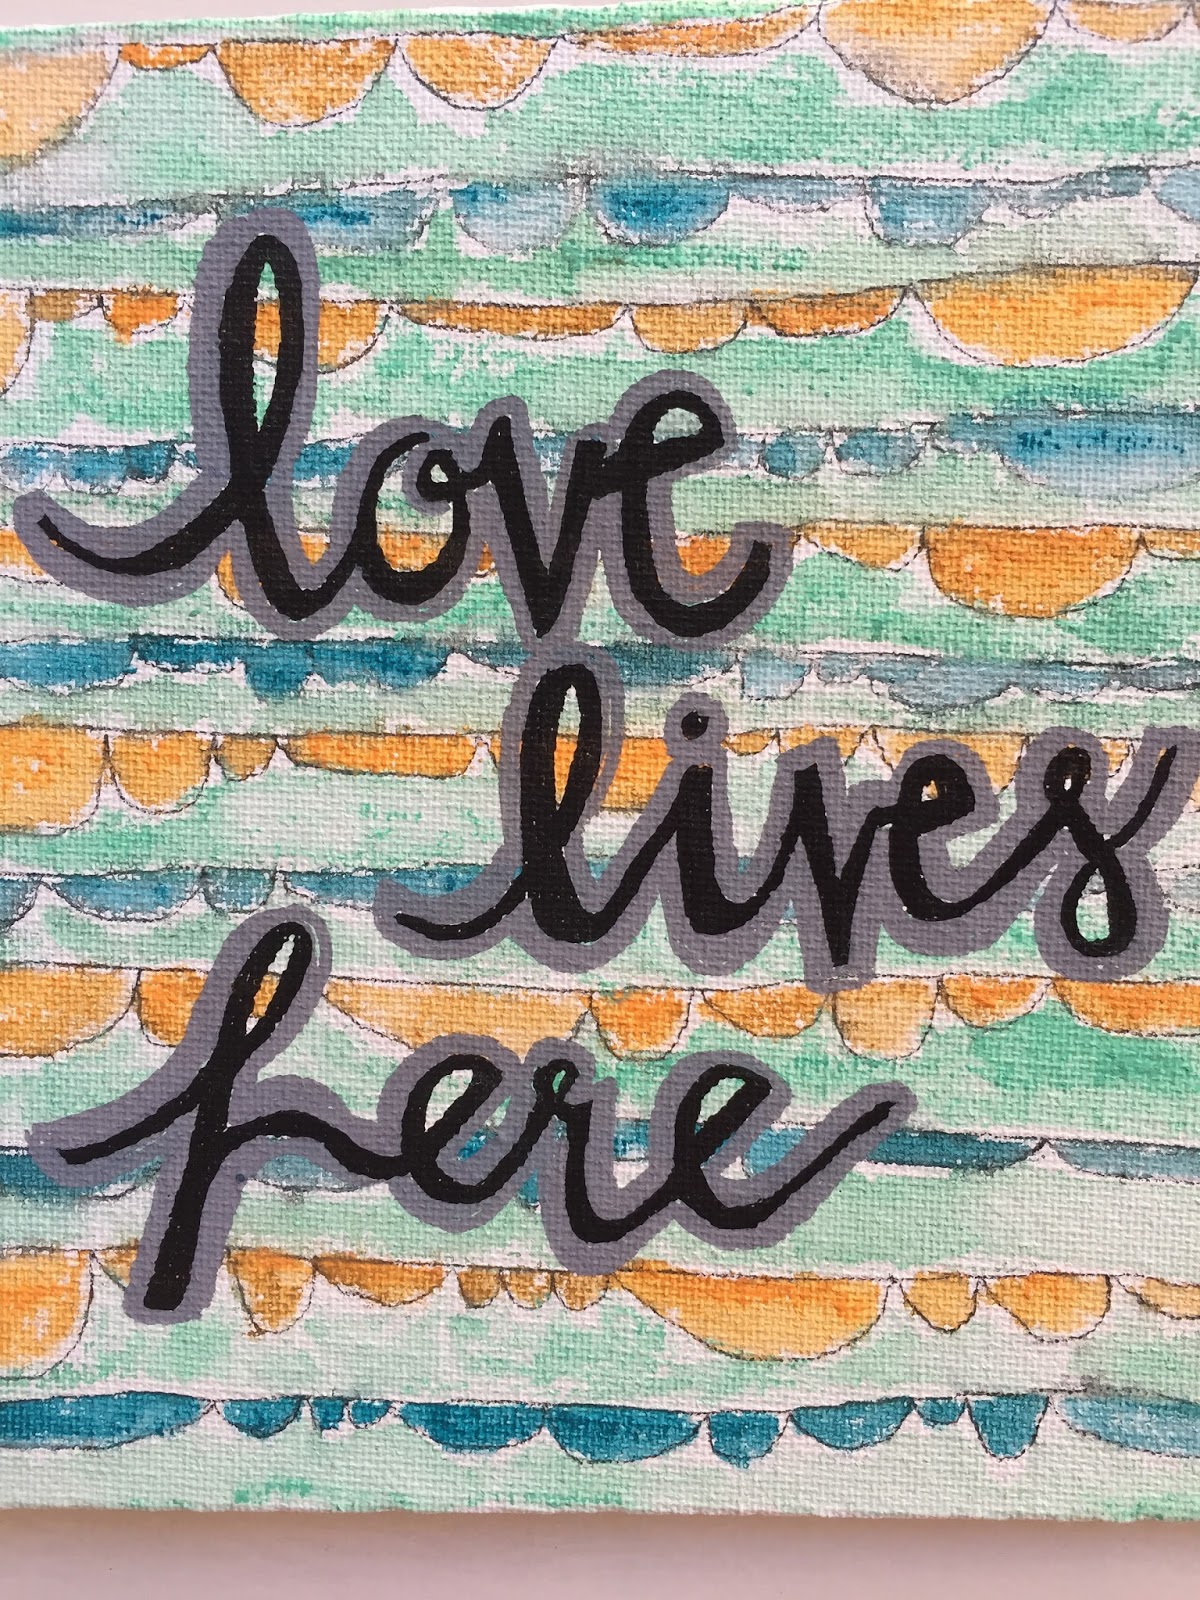 love
lives
here